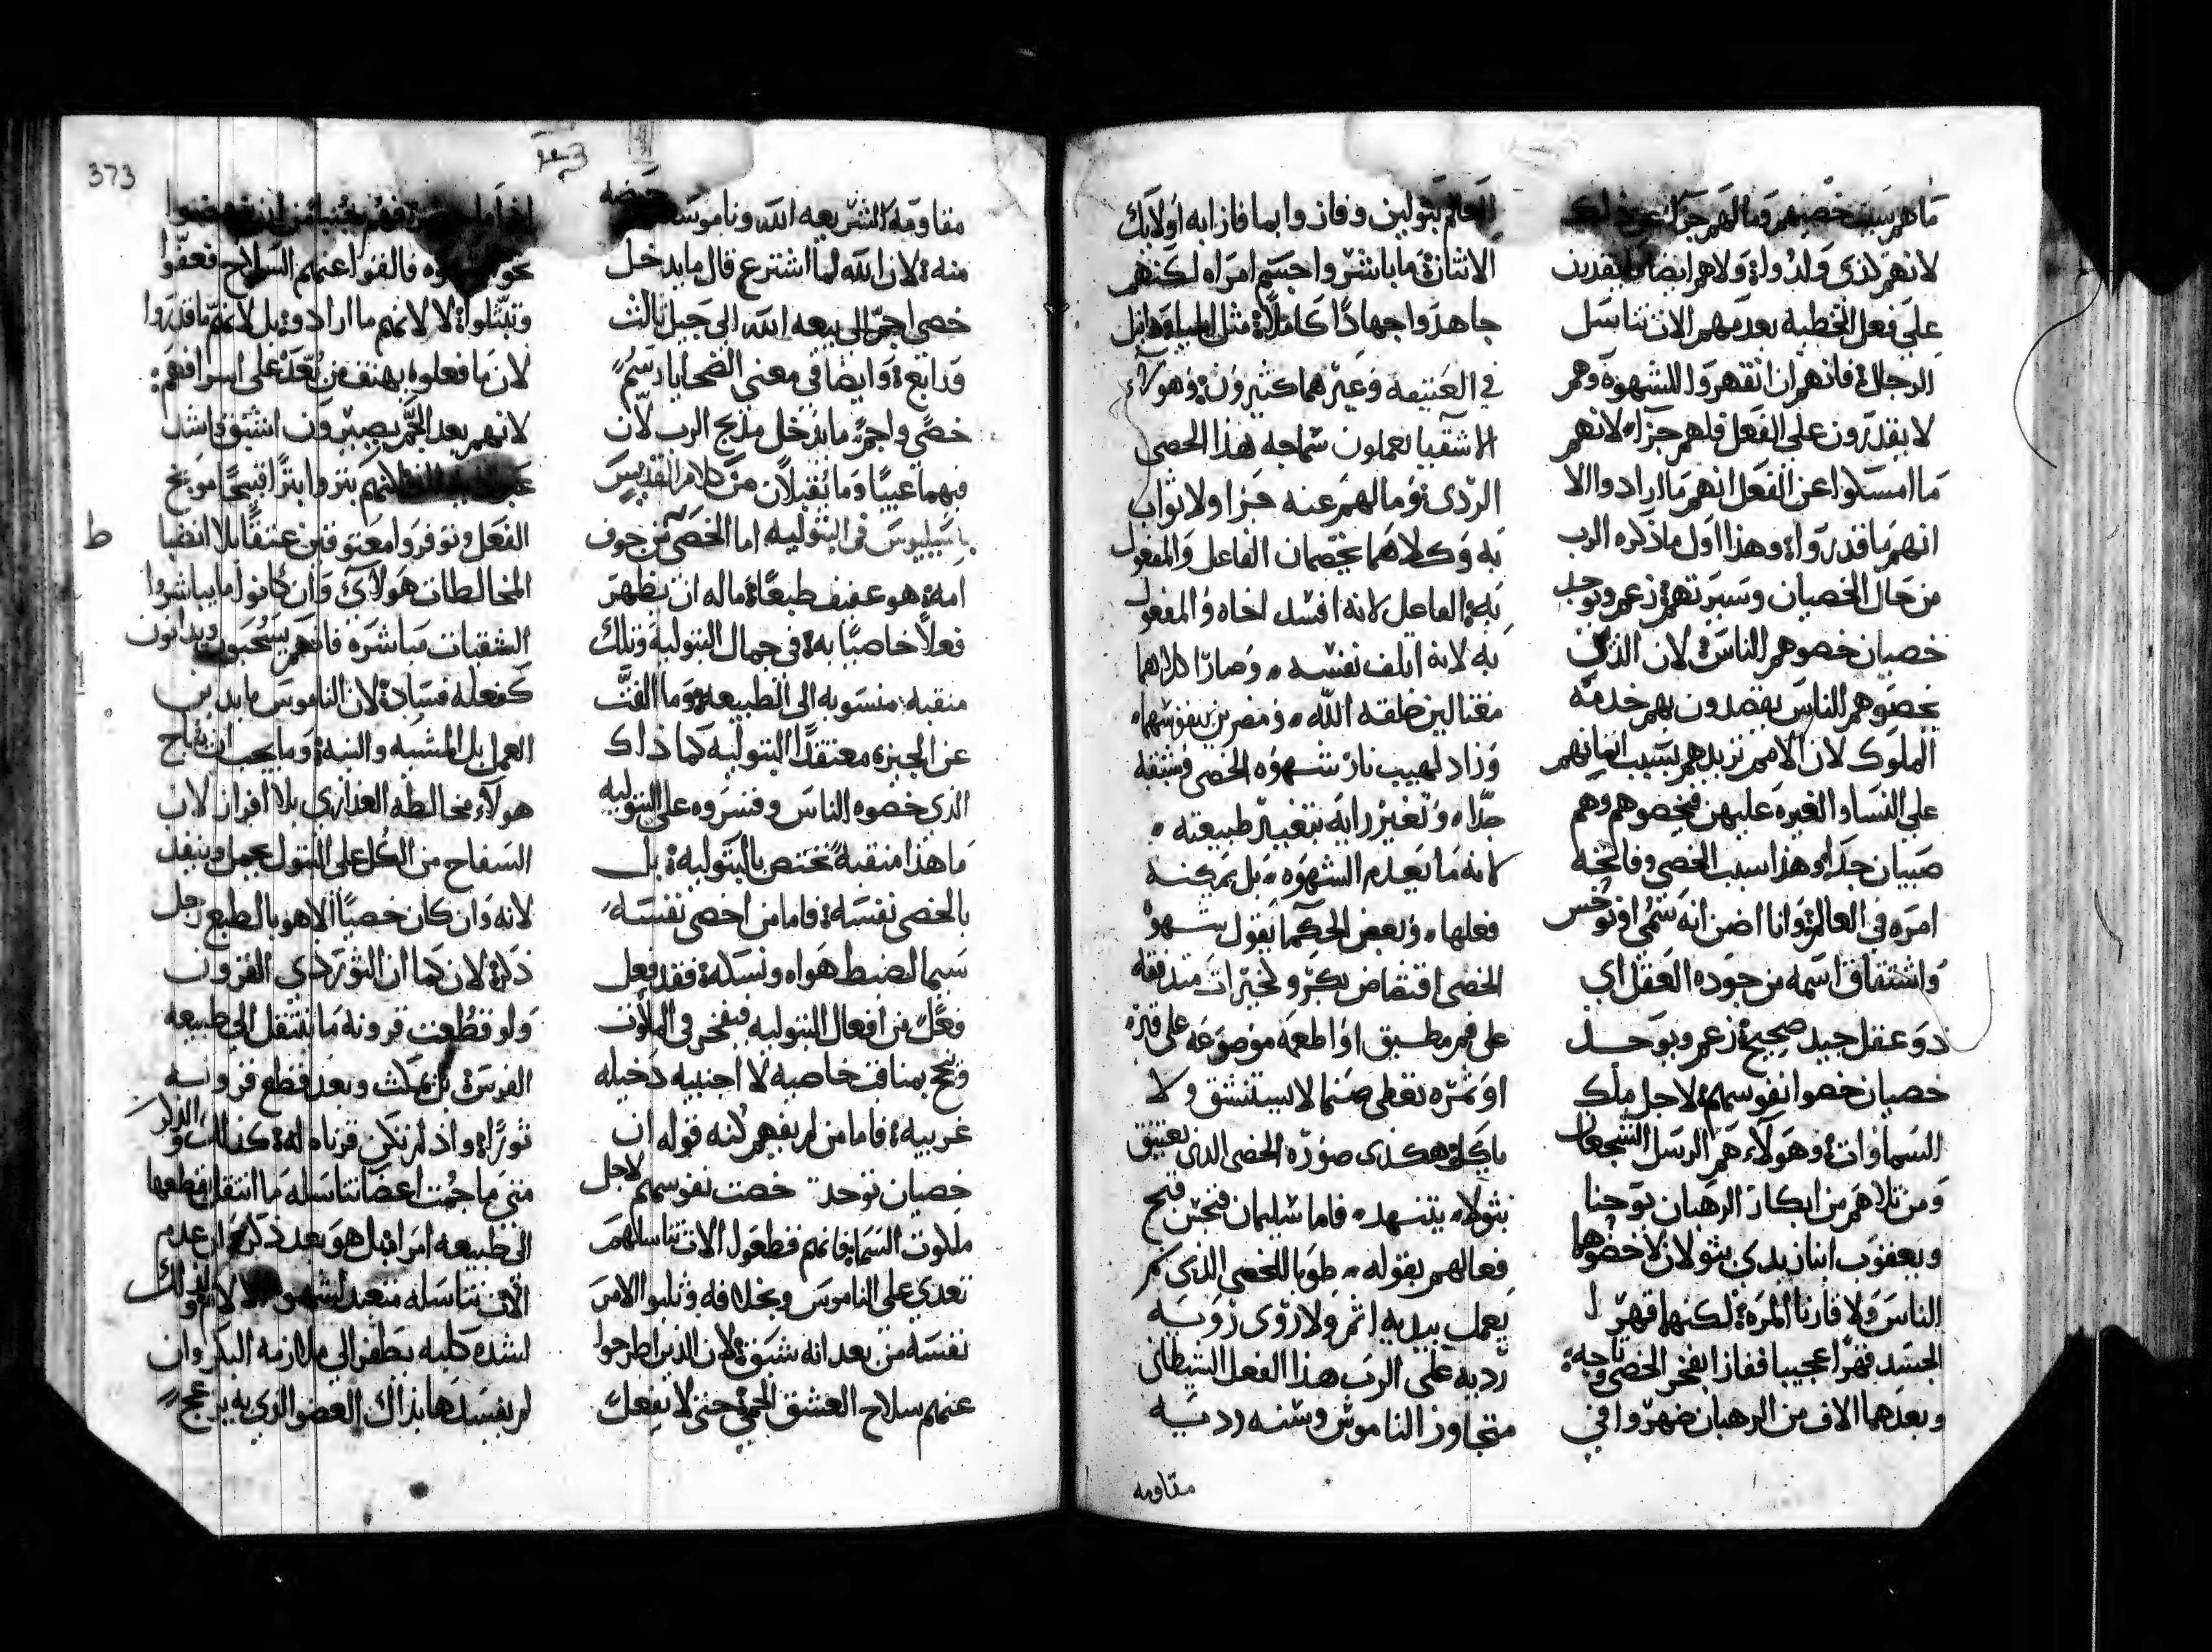 ما هم بسبب خصيهم وما لهم جزا
لانهم لذي ولدوا ولا هم ايضا بقدرين
على فعل الخطيه بعدمهم الات تناسل
الرجال فانهم ان انقهروا للشهوه وهم
لا يقدرون على الفعل فلهم جزاء لانهم
ما امسكوا عن الفعل انهم ما ارادوا الا
انهم ما قدروا وهذا اول ما ذكره الرب
من حال الخصيان وسيرتهم زعم ويوجد
خصيان خصوهم الناس لان الذين
يخصوهم الناس يقصدون بهم خدمة
الملوك لان الامم تريدهم بسبب
على النسا والغيره عليهن فيخصوهم وهم
صبيان جدا وهذا سبب الخصي وفاتحة
امره في العالم وانا اضن انه سمي افنوخس
واشتقاق اسمه من جودة العقل اي
ذو عقل جيد صحيح زعم ويوجد
خصيان خصوا نفوسهم لاجل ملك
السماوات وهولاء هم الرسل الشجعان
ومن تلاهم من ابكار الرهبان يوحنا
ويعقوب ابنا زبدي بتولان لا خضوهما
الناس ولا قارنا المره لكنهما قهرا
الجسد قهرا عجيبا ففازا بفخر الخصي وتاجه
وبعدهما الاف من الرهبان ضهروا في
العالم بتولين وفازوا بما فازا به اولايك
الاثنان ما باشروا جسم امراه لكنهم
جاهدوا جهادا كاملا مثل ايليا وهابل
في العتيقه وغيرهما كثيرون وهولاء
الاشقيا يعملون سماجه هذا الخصي
الردي وما لهم عنه جزا ولا ثواب
به وكلاهما يخصمان الفاعل والمفعول
به الفاعل لانه افسد اخاه والمفعول
به لانه اتلف نفسه وصارا كلاهما
مغتالين خلقة الله ومضرين بنفوسهما
وزاد لهيب نار شهوة الخصي وشبقه
جدا وتغير رايه بتغيير طبيعته
لانه ما يعدم الشهوه بل يمكنه
فعلها وبعض الحكما يقول شهوة
الخصي اقتضاض بكر وخيرات متدفقه
على فم مطبق او اطعمه موضوعه على قبر
او ثمره تعطى صنما لا يستنشق ولا
ياكل وهكذى صورة الخصي الذي يعتنق
بتولا يتنهد فاما سليمان فيحسن فتح
فعالهم بقوله طوبا للخصي الذي لم
يعمل بيديه اثم ولا روى رويه
رديه على الرب هذا الفعل الشيطاني
متجاوز الناموس وسنه رديه
مقاومه
مقاومة الشريعه الله وناموسه
منه لان الله لما اشترع قال ما يدخل
خصي اجر الى بيعه الله الى جيل ثالث
ورابع وايضا في معنى الضحايا رسم
خصي واجر ما يدخل مذبح الرب لان
فيهما عيبا وما يقبلان من كلام القديس
باسيليوس في البتوليه اما الخصي من جوف
امه هو عفيف طبعا ما له ان يظهر
فعلا خاصيا به في جمال البتوليه وتلك
منقبه منسوبه الى الطبيعه وما الفت
عن الجبره معتقدا البتوليه كما ذاك
الذي خصوه الناس وقسروه على البتوليه
ما هذا منقبة تختص بالبتوليه بل
بالخصي نفسه فاما من اخصى نفسه
سيما لضبط هواه ونسكه فقد فعل
فعلا من افعال البتوليه فيفخر في الملكوت
وينجح بمناقب خاصيه لا اجنبيه دخيله
غريبيه فاما من لم يفهم كنه قوله ان
خصيان توجد خصت نفوسهم لاجل
ملكوت السما فانهم قطعوا الات تناسلهم
تعدي على الناموس وبخلافه وثلبوا الامر
نفسه من بعد انه شبق لان الذين اطرحوا
عنهم سلاح العشق الحمي حتى لا يفعل
373
فالقوا عنهم السلاح فعفوا
وتبتلوا لا لانهم ما ارادوه بل لانهم ما قدروا
لان ما فعلوه يهتف من بعد على اسرافهم
لانهم بعد الجم يصيرون اشبق واشد
لانهم بتروا بترا اقبح موبخ
الفعل وتوفروا معتوقين عتقا بلا انضبا
المخالطات هولاي وان كانوا ما يباشروا
الشقيات مباشره فانهم يسحبون ويدانون
كفعله فساد لان الناموس ما يدين
العمل بل المشيه والنيه وما يجب ان يباح
هولاء مخالطة العذارى بلا افراز لان
السفاح من الكل على البتول يجمل ويثقل
لانه وان كان خصيا الا هو بالطبع رجل
ذكر لان كما ان الثور ذي القرون
ولو قطعت قرونه ما ينتقل الى طبيعه
الفرس بل يمكث وبعد قطع قرونه
ثورا واذ لم تكن قرناه له كذلك والذكر
متى ما جمت اعضا تناسله ما انتقل بقطعها
الى طبيعه امراه بل هو بعد ذكر وان عدم
لشدة كلبه يطفر الى ملازمة البكر وان
لم يفسدها بذاك العضو الذي به يزعج
ط